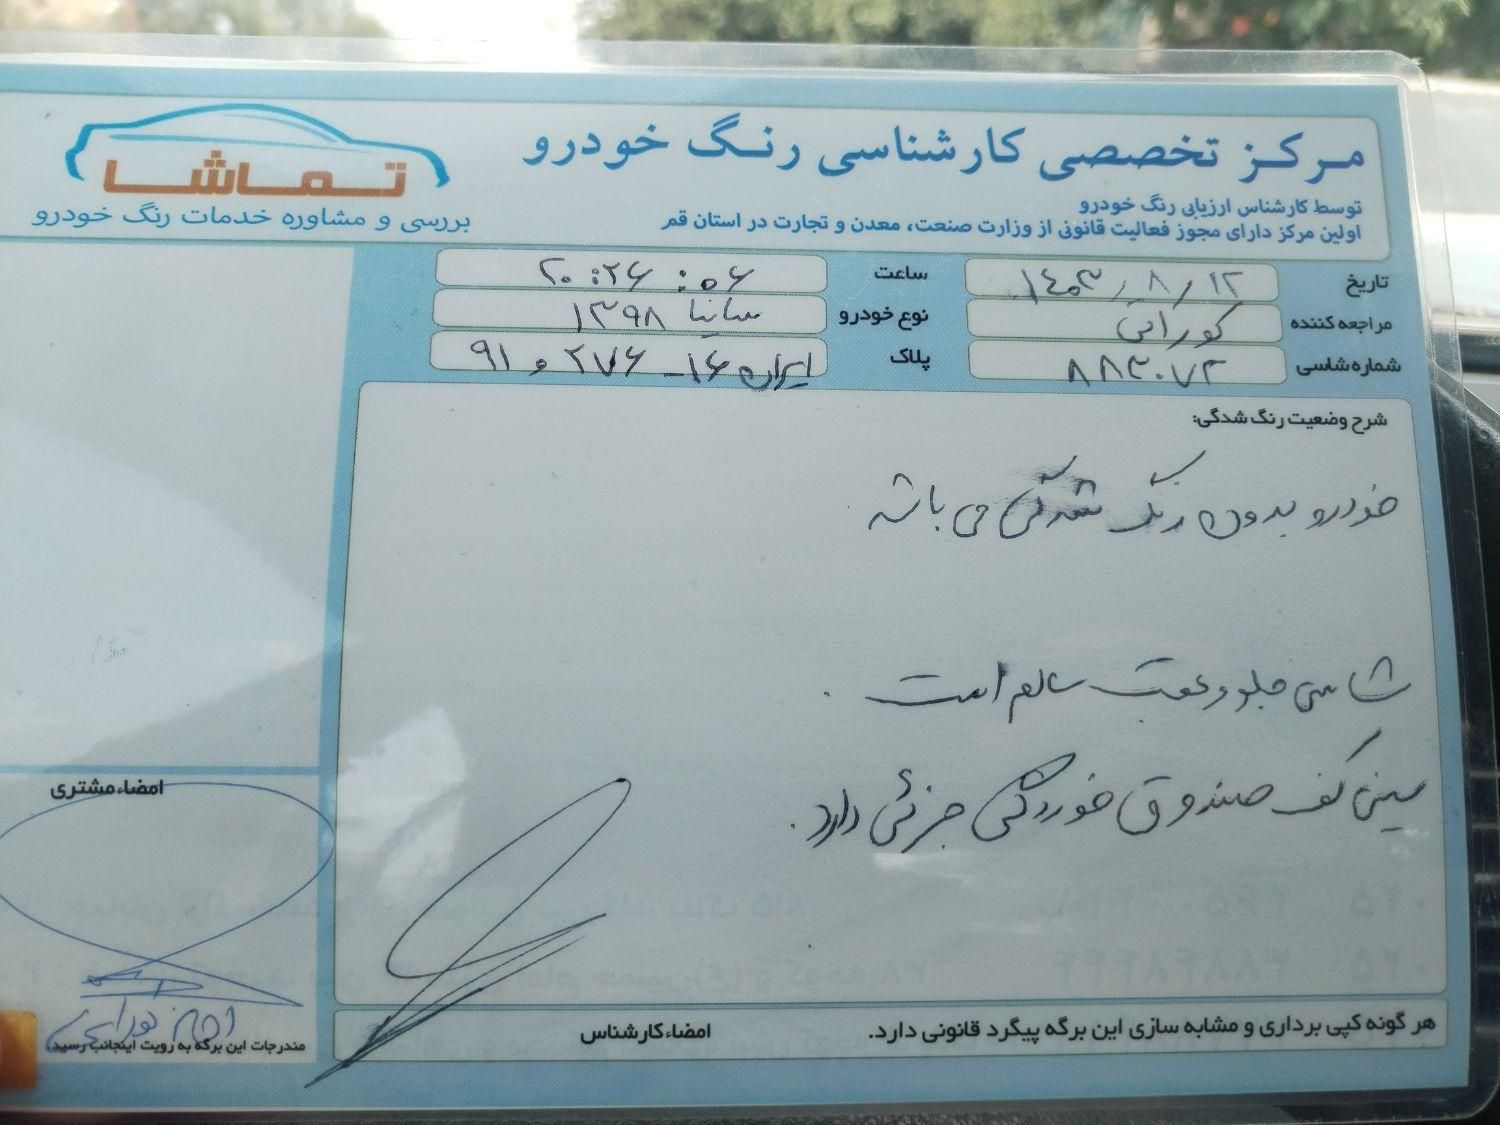 مرکز تخصصی کارشناسی رنگ خودرو
توسط کارشناس ارزیابی رنگ خودرو
اولین مرکز دارای مجوز فعالیت قانونی از وزارت صنعت، معدن و تجارت در استان قم
تماشا
بررسی و مشاوره خدمات رنگ خودرو
تاریخ ۱۴۰۳/۸/۱۲
ساعت ۲۰:۲۶:۵۶
مراجعه کننده
نوع خودرو ساینا ۱۳۹۸
شماره شاسی ۸۸۳۰۷۲
پلاک ایران ۱۶ - ۲۷۶ و ۹۱
شرح وضعیت رنگ شدگی:
خودرو بدون رنگ شدگی می باشد.
شاسی جلو و عقب سالم است.
سینی کف صندوق خوردگی جزئی دارد.
امضاء مشتری
مندرجات این برگه به رویت اینجانب رسید.
امضاء کارشناس
هر گونه کپی برداری و مشابه سازی این برگه پیگرد قانونی دارد.